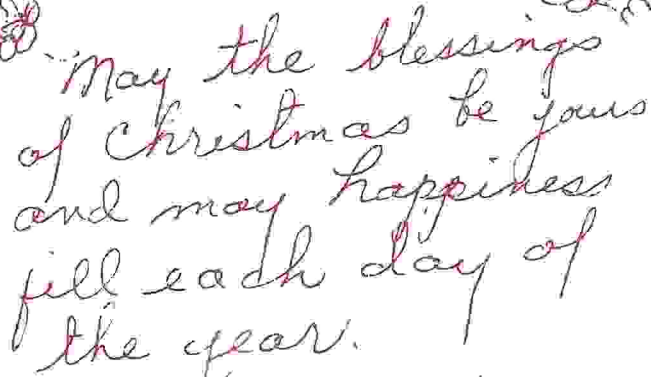 "May the blessings
of Christmas be yours
and may happiness
fill each day of
the year.